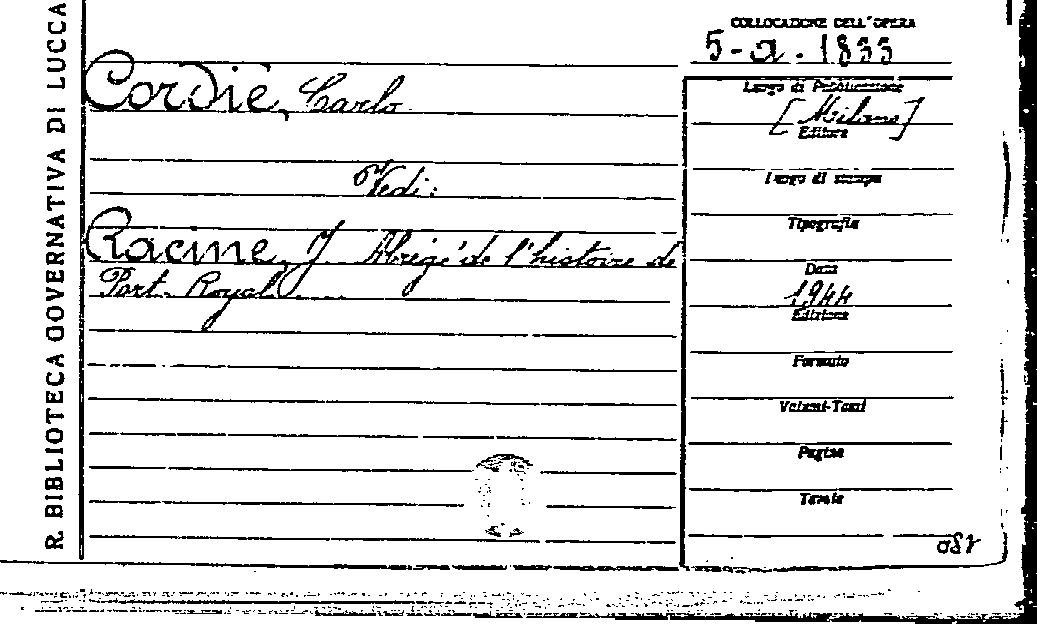 R. BIBLIOTECA GOVERNATIVA DI LUCCA
COLLOCAZIONE DELL'OPERA
5-a. 1833
Cordiè, Carlo
Vedi:
Racine, J. Abrégé de l'histoire de
Port-Royal....
Luogo di Pubblicazione
[Milano]
Editore
Luogo di stampa
Tipografia
Data
1944
Edizione
Formato
Volumi-Tomi
Pagine
Tavole